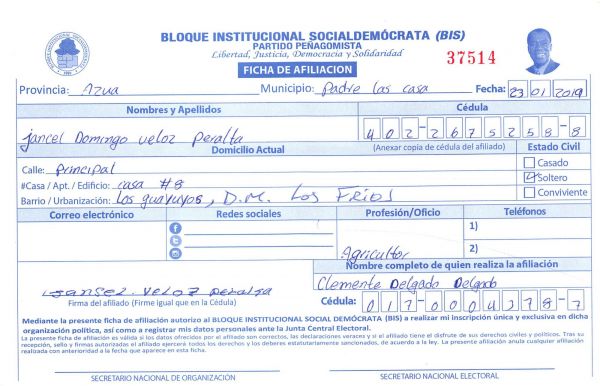 BLOQUE INSTITUCIONAL SOCIALDEMÓCRATA (BIS)
PARTIDO PEÑAGOMISTA
Libertad, Justicia, Democracia y Solidaridad
37514
FICHA DE AFILIACION
Provincia: Azua Municipio: Padre las casa Fecha: 23 01 2019
Nombres y Apellidos Cédula
Jancel Domingo veloz Peralta 402-2675258-8
Domicilio Actual (Anexar copia de cédula del afiliado) Estado Civil
Calle: Principal Casado
#Casa / Apt. / Edificio: casa #8 Soltero
Barrio / Urbanización: Los guayuyos, D.M. Los Fríos Conviviente
Correo electrónico Redes sociales Profesión/Oficio Teléfonos
1)
Agricultor 2)
Nombre completo de quien realiza la afiliación
Clemente Delgado Delgado
Jansel. Veloz Peralta
Firma del afiliado (Firme igual que en la Cédula) Cédula: 017-0004378-7
Mediante la presente ficha de afiliación autorizo al BLOQUE INSTITUCIONAL SOCIAL DEMÓCRATA (BIS) a realizar mi inscripción única y exclusiva en dicha
organización política, así como a registrar mis datos personales ante la Junta Central Electoral.
La presente ficha de afiliación es válida si los datos ofrecidos por el afiliado son correctos, las declaraciones veraces y si el afiliado tiene el disfrute de sus derechos civiles y políticos. Tras su
recepción, sello y firmas autorizadas el afiliado ejercerá todos los derechos y los deberes estatutariamente sancionados, de acuerdo a la ley. La presente afiliación anula cualquier afiliación
realizada con anterioridad a la fecha que aparece en esta ficha.
SECRETARIO NACIONAL DE ORGANIZACIÓN SECRETARIO NACIONAL ELECTORAL